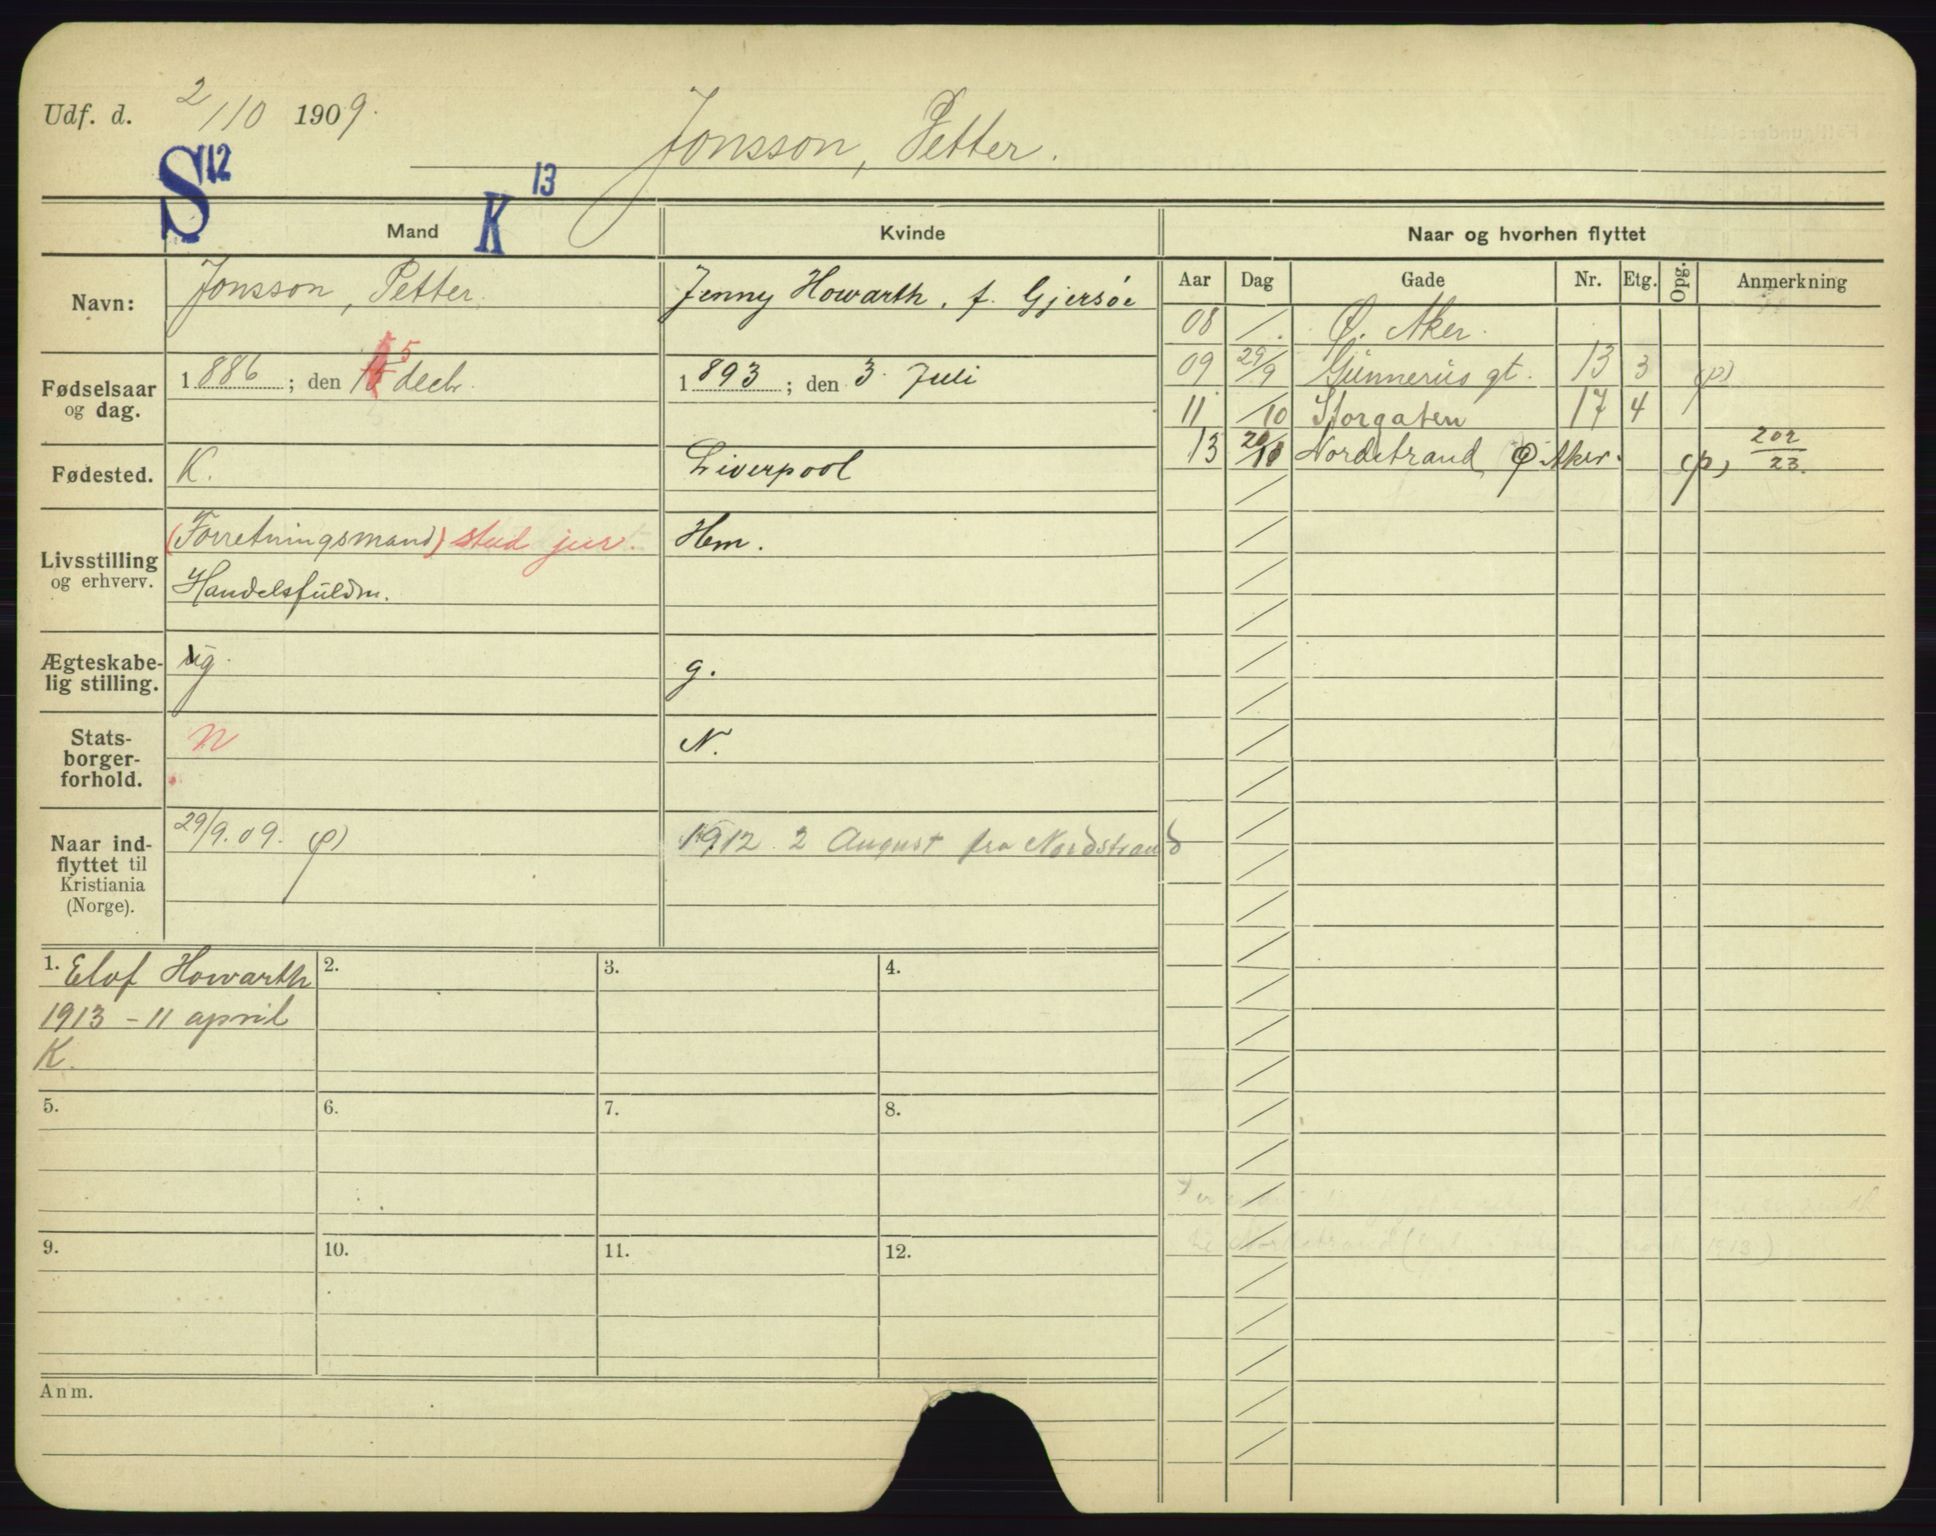 Udf. d. 2/10 1909.
Jonsson, Petter.
S 12
K 13
Mand
Kvinde
Naar og hvorhen flyttet
Navn:
Jonsson, Petter.
Jenny Howarth, f. Gjersöe
Aar Dag Gade Nr. Etg. Opg. Anmerkning
08 / Ø. Aker.
09 29/9 Gunnerus gt. 13 3 (p)
11 /10 Storgaten 17 4
13 20/10 Nordstrand Ø. Aker. (p) 202/23.
Fødselsaar og dag.
1886; den 5 decbr.
1893; den 3. Juli
Fødested.
K.
Liverpool
Livsstilling og erhverv.
(Forretningsmand) stud jur.
Handelsfuldm.
Hem.
Ægteskabe-
lig stilling.
ug.
g.
Stats-
borger-
forhold.
N
N.
Naar ind-
flyttet til
Kristiania
(Norge).
29/9.09. (p)
1912 2 August fra Nordstrand
1. Elof Howarth
1913 - 11 april
K.
2.
3.
4.
5.
6.
7.
8.
9.
10.
11.
12.
Anm.